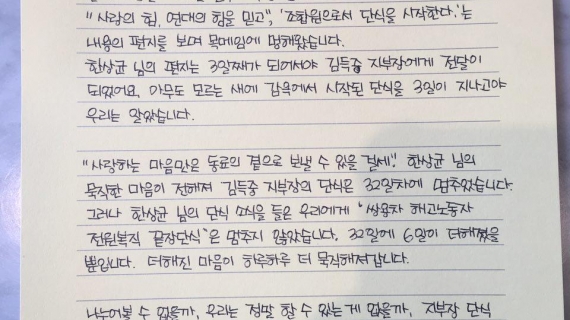 "사람의 힘, 연대의 힘을 믿고", '조합원으로서 단식을 시작한다.'는
내용의 편지를 보며 목메임에 멍해왔습니다.
한상균 님의 편지는 3일째가 되어서야 김득중 지부장에게 전달이
되었어요. 아무도 모르는 새에 감옥에서 시작된 단식을 3일이 지나고야
우리는 알았습니다.
"사랑하는 마음만은 동료의 곁으로 보낼 수 있을 걸세". 한상균 님의
묵직한 마음이 전해져 김득중 지부장의 단식은 32일차에 멈추었습니다.
그러나 한상균 님의 단식 소식을 들은 우리에게 '쌍용차 해고노동자
전원복직 끝장단식'은 멈추지 않았습니다. 32일에 6일이 더해졌을
뿐입니다. 더해진 마음이 하루하루 더 묵직해져갑니다.
나누어볼 수 없을까, 우리는 정말 할 수 있는 게 없을까, 지부장 단식